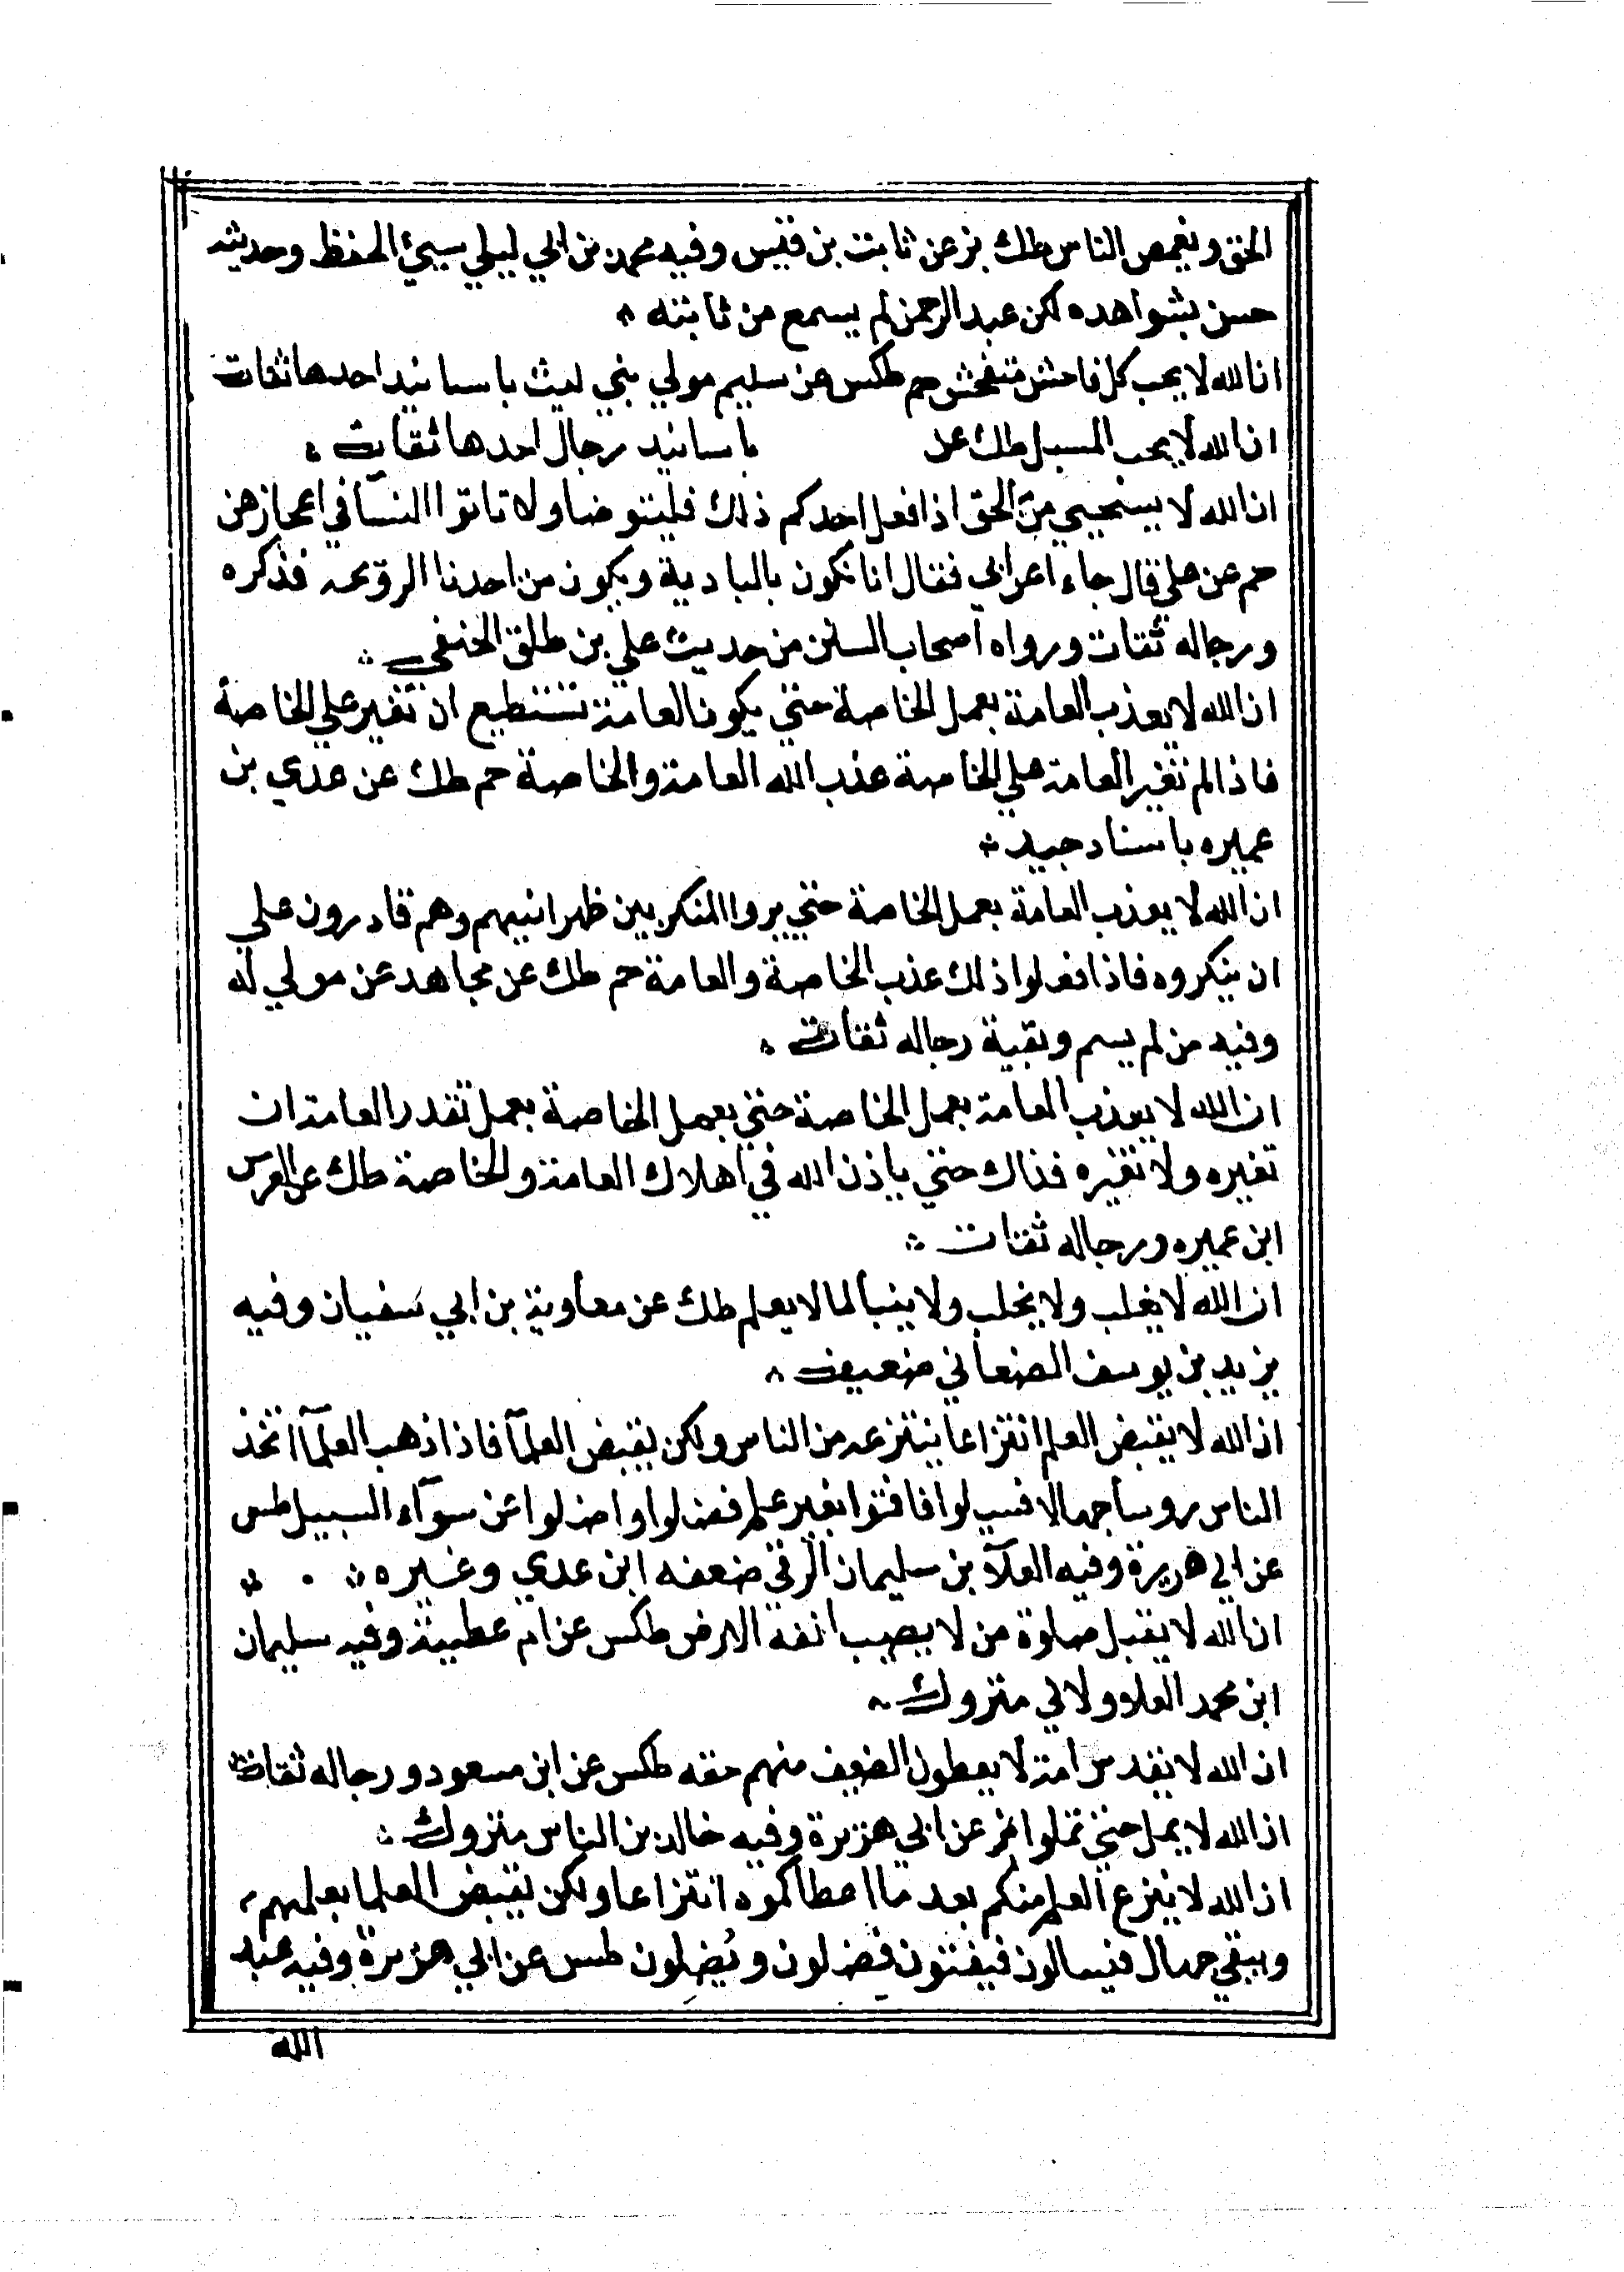 الحق ويغمص الناس طك بز عن ثابت بن قيس وفيه محمد بن ابي ليلي سيئ الحفظ وحديثه
حسن بشواهده لكن عبد الرحمن لم يسمع من ثابته
ان الله لا يحب كل فاحش متفحش حم طكس عن سليم مولي بني ليث باسانيد احدها ثقات
ان الله لا يحب المسبل طك عن باسانيد رجال احدها ثقات
ان الله لا يستحيي من الحق اذا فعل احدكم ذلك فليتوضا ولا تاتوا النسآ في اعجازهن
حم عن علي قال جاء اعرابي فقال انا نكون بالبادية ويكون من احدنا الرويحه فذكره
ورجاله ثقات ورواه اصحاب السنن من حديث علي بن طلق الحنفي
ان الله لا يعذب العامة بعمل الخاصة حتي يكون العامة تستطيع ان تغير علي الخاصة
فاذا لم تغير العامة علي الخاصة عذب الله العامة والخاصة حم طك عن عدي بن
عميره باسناد جيد
ان الله لا يعذب العامة بعمل الخاصة حتي يروا المنكر بين ظهرانيهم وهم قادرون علي
ان ينكروه فاذا فعلوا ذلك عذب الخاصة والعامة حم طك عن مجاهد عن مولي له
وفيه من لم يسم وبقية رجاله ثقات
ان الله لا يعذب العامة بعمل الخاصة حتي يعمل الخاصة بعمل تقدر العامة ان
تغيره ولا تغيره فذاك حتي ياذن الله في اهلاك العامة والخاصة طك عن العرس
ابن عميره ورجاله ثقات
ان الله لا يغلب ولا يخلب ولا ينبأ لما لا يعلم طك عن معاوية بن ابي سفيان وفيه
يزيد بن يوسف الصنعاني ضعيف
ان الله لا يقبض العلم انتزاعا ينتزعه من الناس ولكن يقبض العلمآ فاذا ذهب العلمآ اتخذ
الناس روسا جهالا فسيلوا فافتوا بغير علم فضلوا واضلوا عن سوآء السبيل طس
عن ابي هريرة وفيه العلآ بن سليمان الرقي ضعفه ابن عدي وغيره
ان الله لا يقبل صلوة من لا يصيب انفه الارض طكس عن ام عطية وفيه سليمان
ابن محمد العلاولالي متروك
ان الله لا يقدس امة لا يعطون الضعيف منهم حقه طكس عن ابن مسعود ورجاله ثقات
ان الله لا يمل حتي تملوا بز عن ابي هريرة وفيه خالد بن الناس متروك
ان الله لا ينزع العلم منكم بعد ما اعطاكموه انتزاعا ولكن يقبض العلما بعلمهم
ويبقي جهال فيسالون فيفتون فيضلون ويضلون طس عن ابي هريرة وفيه عبد
الله